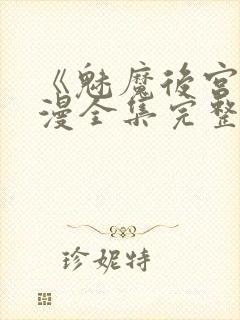 《魅魔後宮
漫全集完整
珍妮特